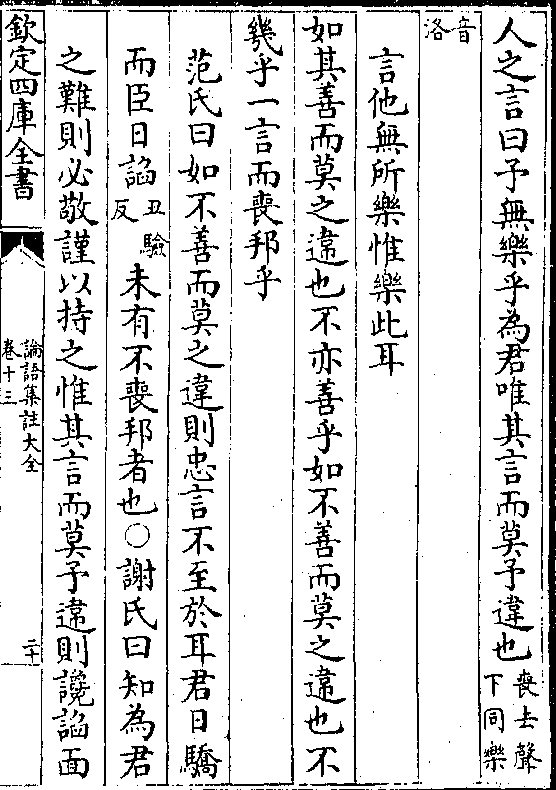 人之言曰予無樂乎為君唯其言而莫予違也喪去聲下同樂
音洛
言他無所樂惟樂此耳
如其善而莫之違也不亦善乎如不善而莫之違也不
幾乎一言而喪邦乎
范氏曰如不善而莫之違則忠言不至於耳君日驕
而臣日諂丑驗反未有不喪邦者也○謝氏曰知為君
之難則必敬謹以持之惟其言而莫予違則讒諂面
欽定四庫全書
論語集註大全
卷十三
二十